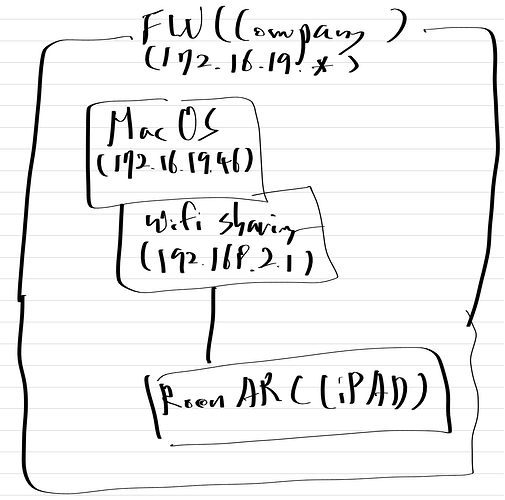 FW (Company)
(172.16.19.*)
Mac OS
(172.16.19.46)
Wifi sharing
(192.168.2.1)
Roon ARC (iPAD)